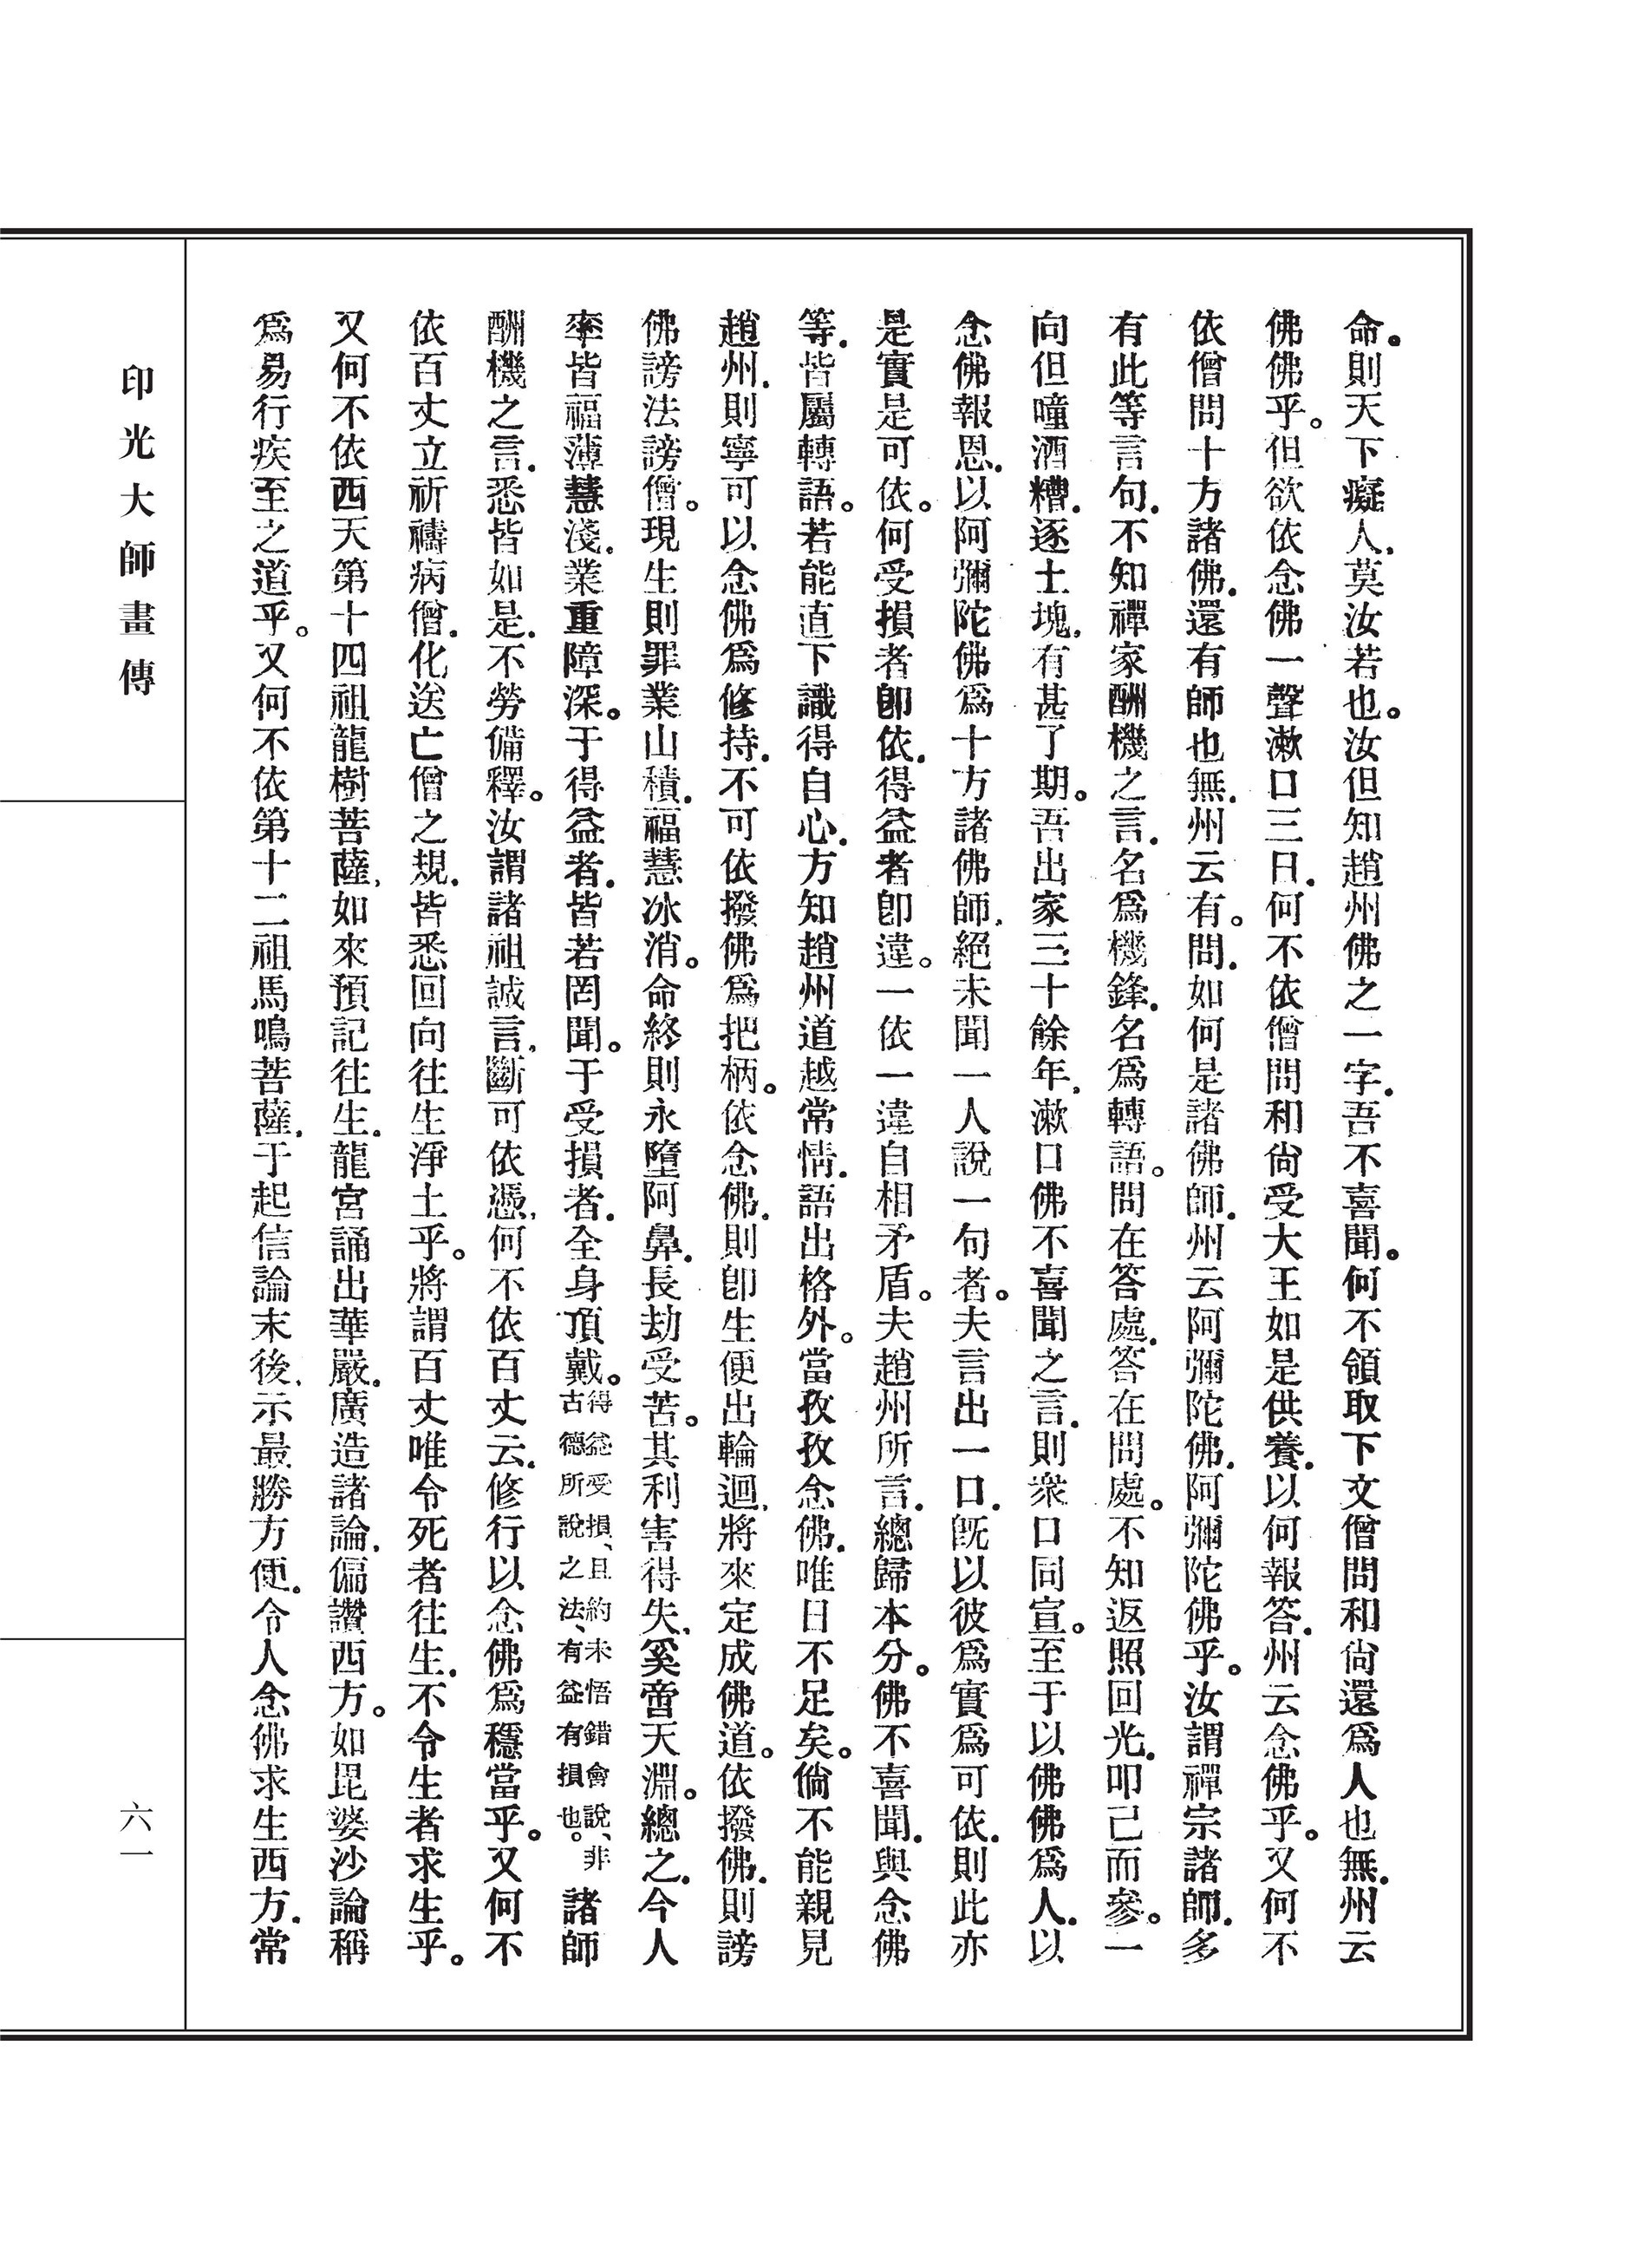 命。則天下癡人.莫汝若也。汝但知趙州佛之一字.吾不喜聞。何不領取下文僧問和尙還爲人也無.州云
佛佛乎。但欲依念佛一聲漱口三日.何不依僧問和尙受大王如是供養.以何報答.州云念佛乎。又何不
依僧問十方諸佛.還有師也無.州云有。問.如何是諸佛師.州云阿彌陀佛.阿彌陀佛乎。汝謂禪宗諸師.多
有此等言句.不知禪家酬機之言.名爲機鋒.名爲轉語。問在答處.答在問處。不知返照回光.叩己而參。一
向但噇酒糟.逐土塊.有甚了期。吾出家三十餘年.漱口佛不喜聞之言.則衆口同宣。至于以佛佛爲人.以
念佛報恩.以阿彌陀佛爲十方諸佛師.絕未聞一人說一句者。夫言出一口.旣以彼爲實爲可依.則此亦
是實是可依。何受損者卽依.得益者卽違。一依一違自相矛盾。夫趙州所言.總歸本分。佛不喜聞.與念佛
等.皆屬轉語。若能直下識得自心.方知趙州道越常情.語出格外。當孜孜念佛.唯日不足矣。倘不能親見
趙州.則寧可以念佛爲修持.不可依撥佛爲把柄。依念佛.則卽生便出輪迴.將來定成佛道。依撥佛.則謗
佛謗法謗僧。現生則罪業山積.福慧冰消。命終則永墮阿鼻.長劫受苦。其利害得失.奚啻天淵。總之.今人
率皆福薄慧淺.業重障深。于得益者.皆若罔聞。于受損者.全身頂戴。得益受損、且約未悟錯會說、非古德所說之法、有益有損也。諸師
酬機之言.悉皆如是.不勞備釋。汝謂諸祖誠言.斷可依憑.何不依百丈云.修行以念佛爲穩當乎。又何不
依百丈立祈禱病僧.化送亡僧之規.皆悉回向往生淨土乎。將謂百丈唯令死者往生.不令生者求生乎。
又何不依西天第十四祖龍樹菩薩.如來預記往生.龍宮誦出華嚴.廣造諸論.偏讚西方。如毘婆沙論稱
爲易行疾至之道乎。又何不依第十二祖馬鳴菩薩.于起信論末後.示最勝方便.令人念佛求生西方.常
印光大師畫傳
六一